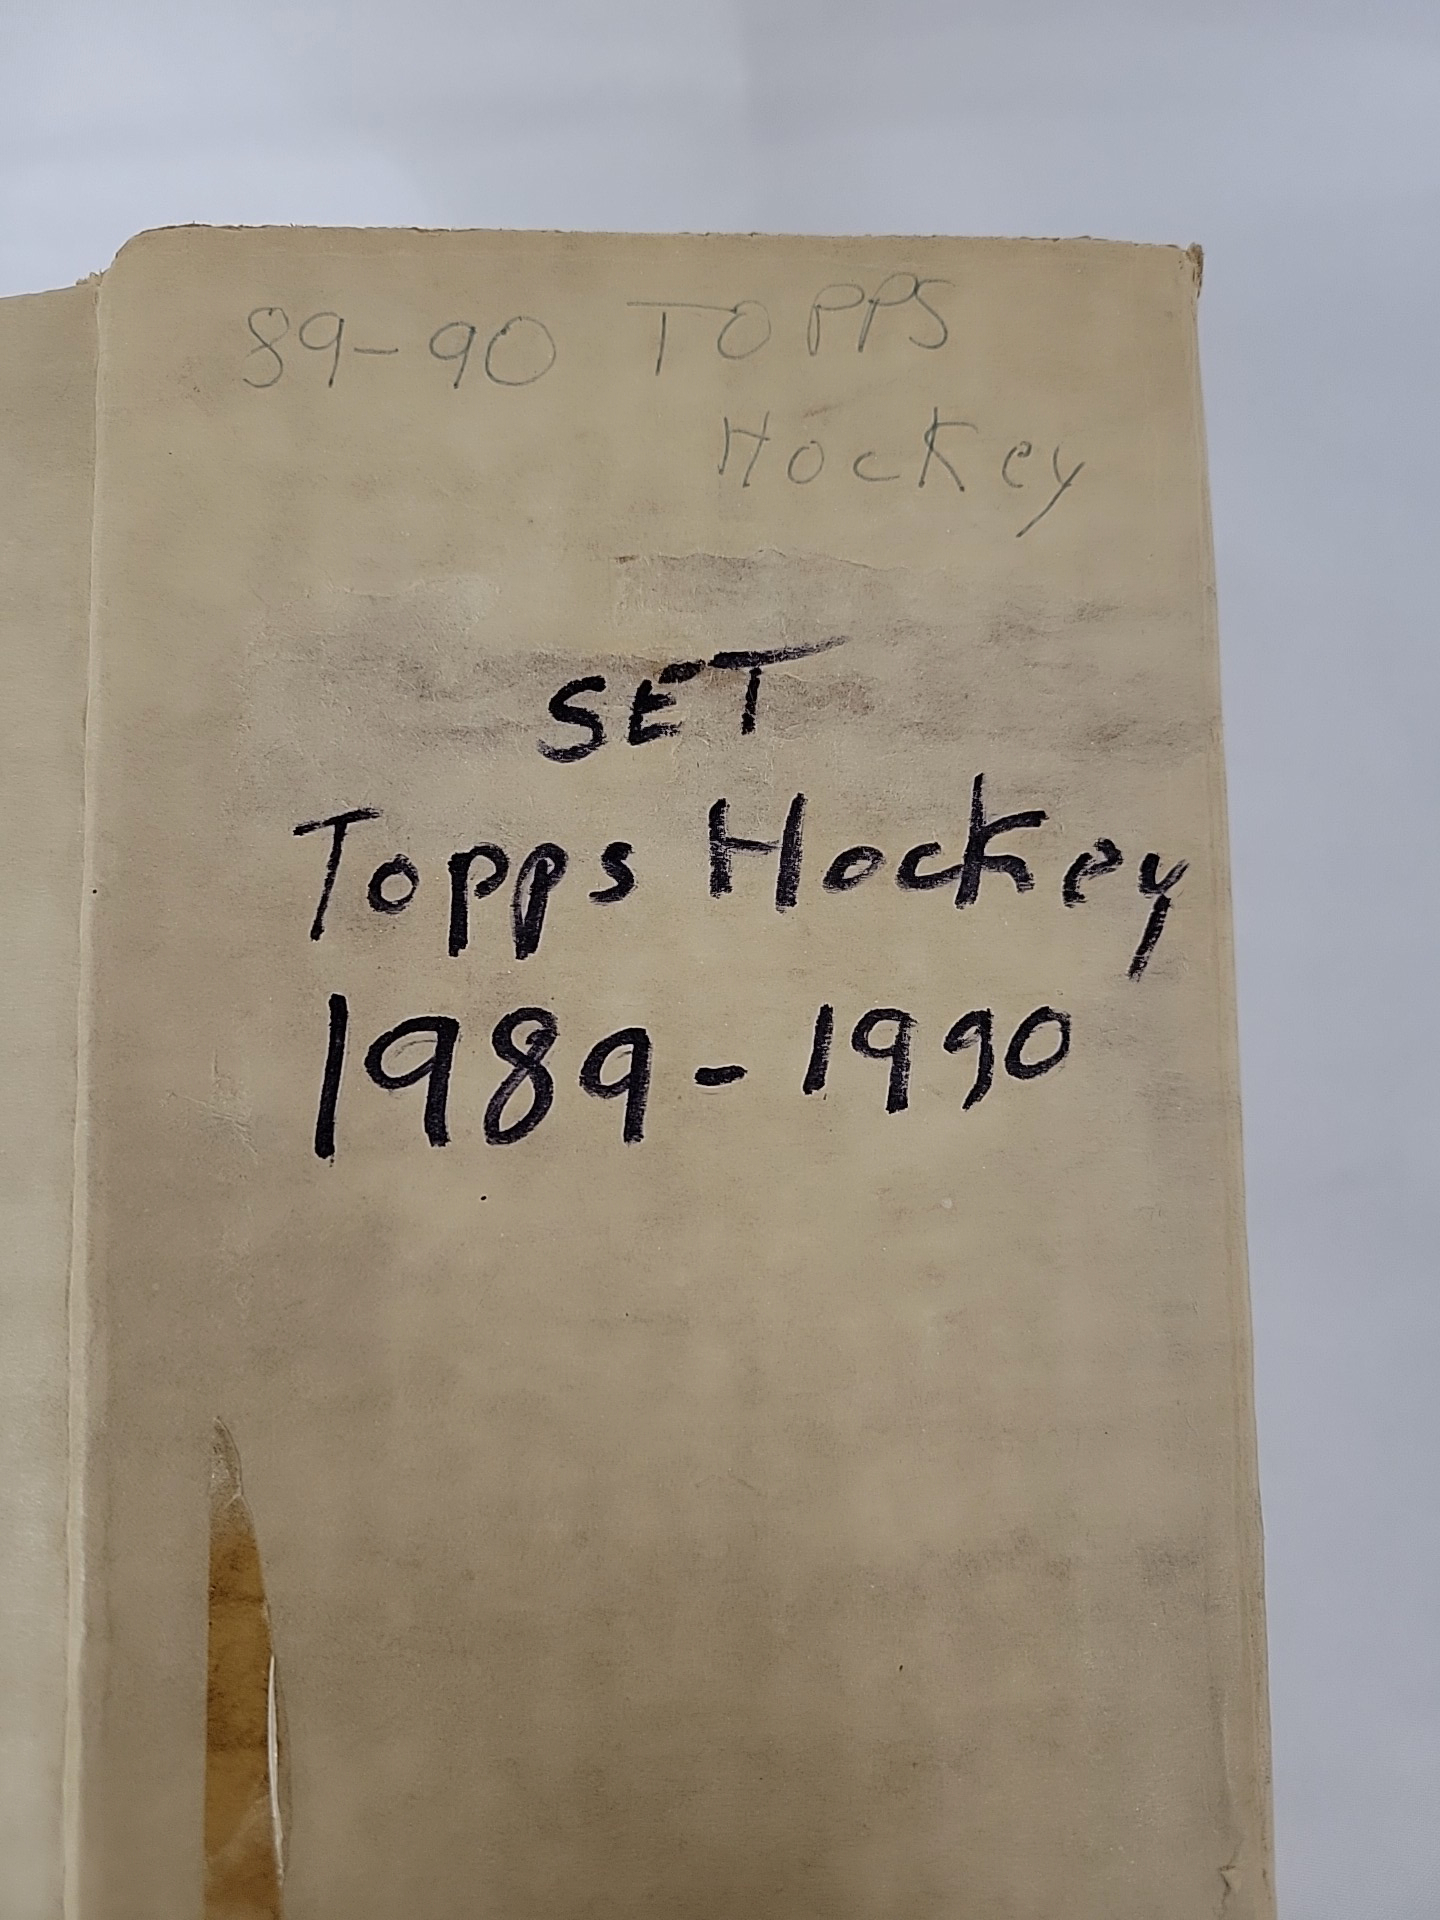 89-90 TOPPS
Hockey
SET
Topps Hockey
1989-1990